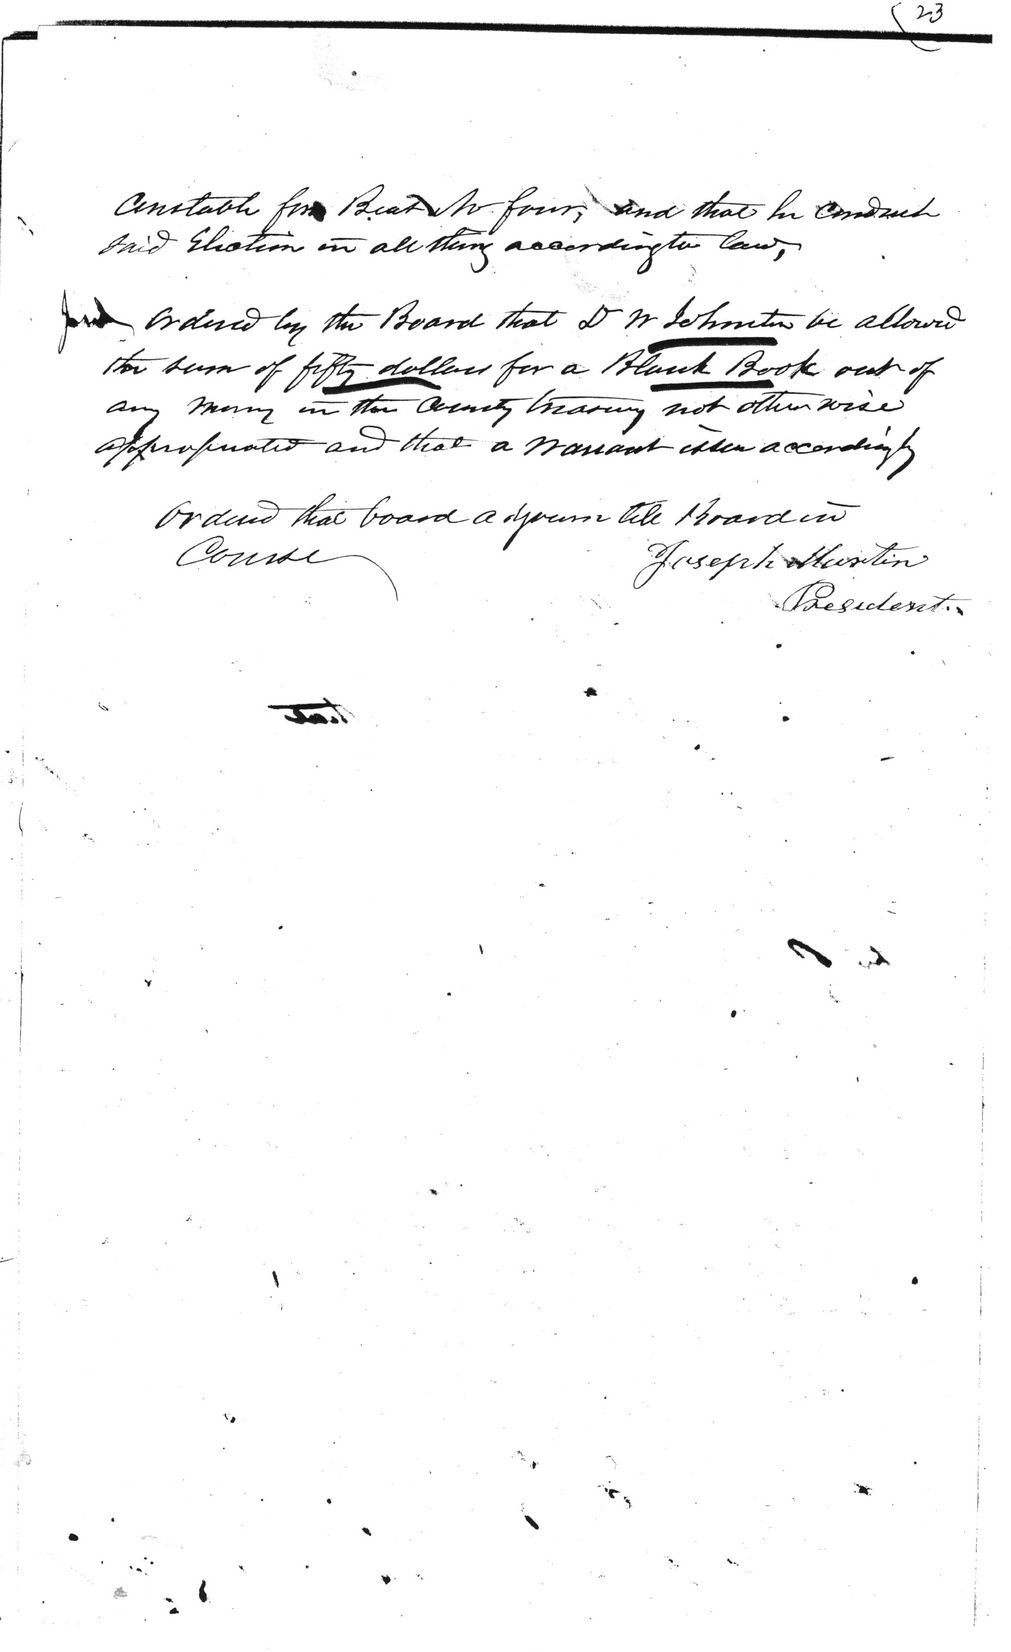 23
Constable for Beat No four, and that he conduct
said Election in all thing according to law,
Ordered by the Board that D W Johnston be allowed
the sum of fifty dollars for a Blank Book out of
any Money in the County treasury not otherwise
appropriated and that a warrant issue accordingly
Ordered that board adjourn till Board in
Course
Joseph Martin
President.